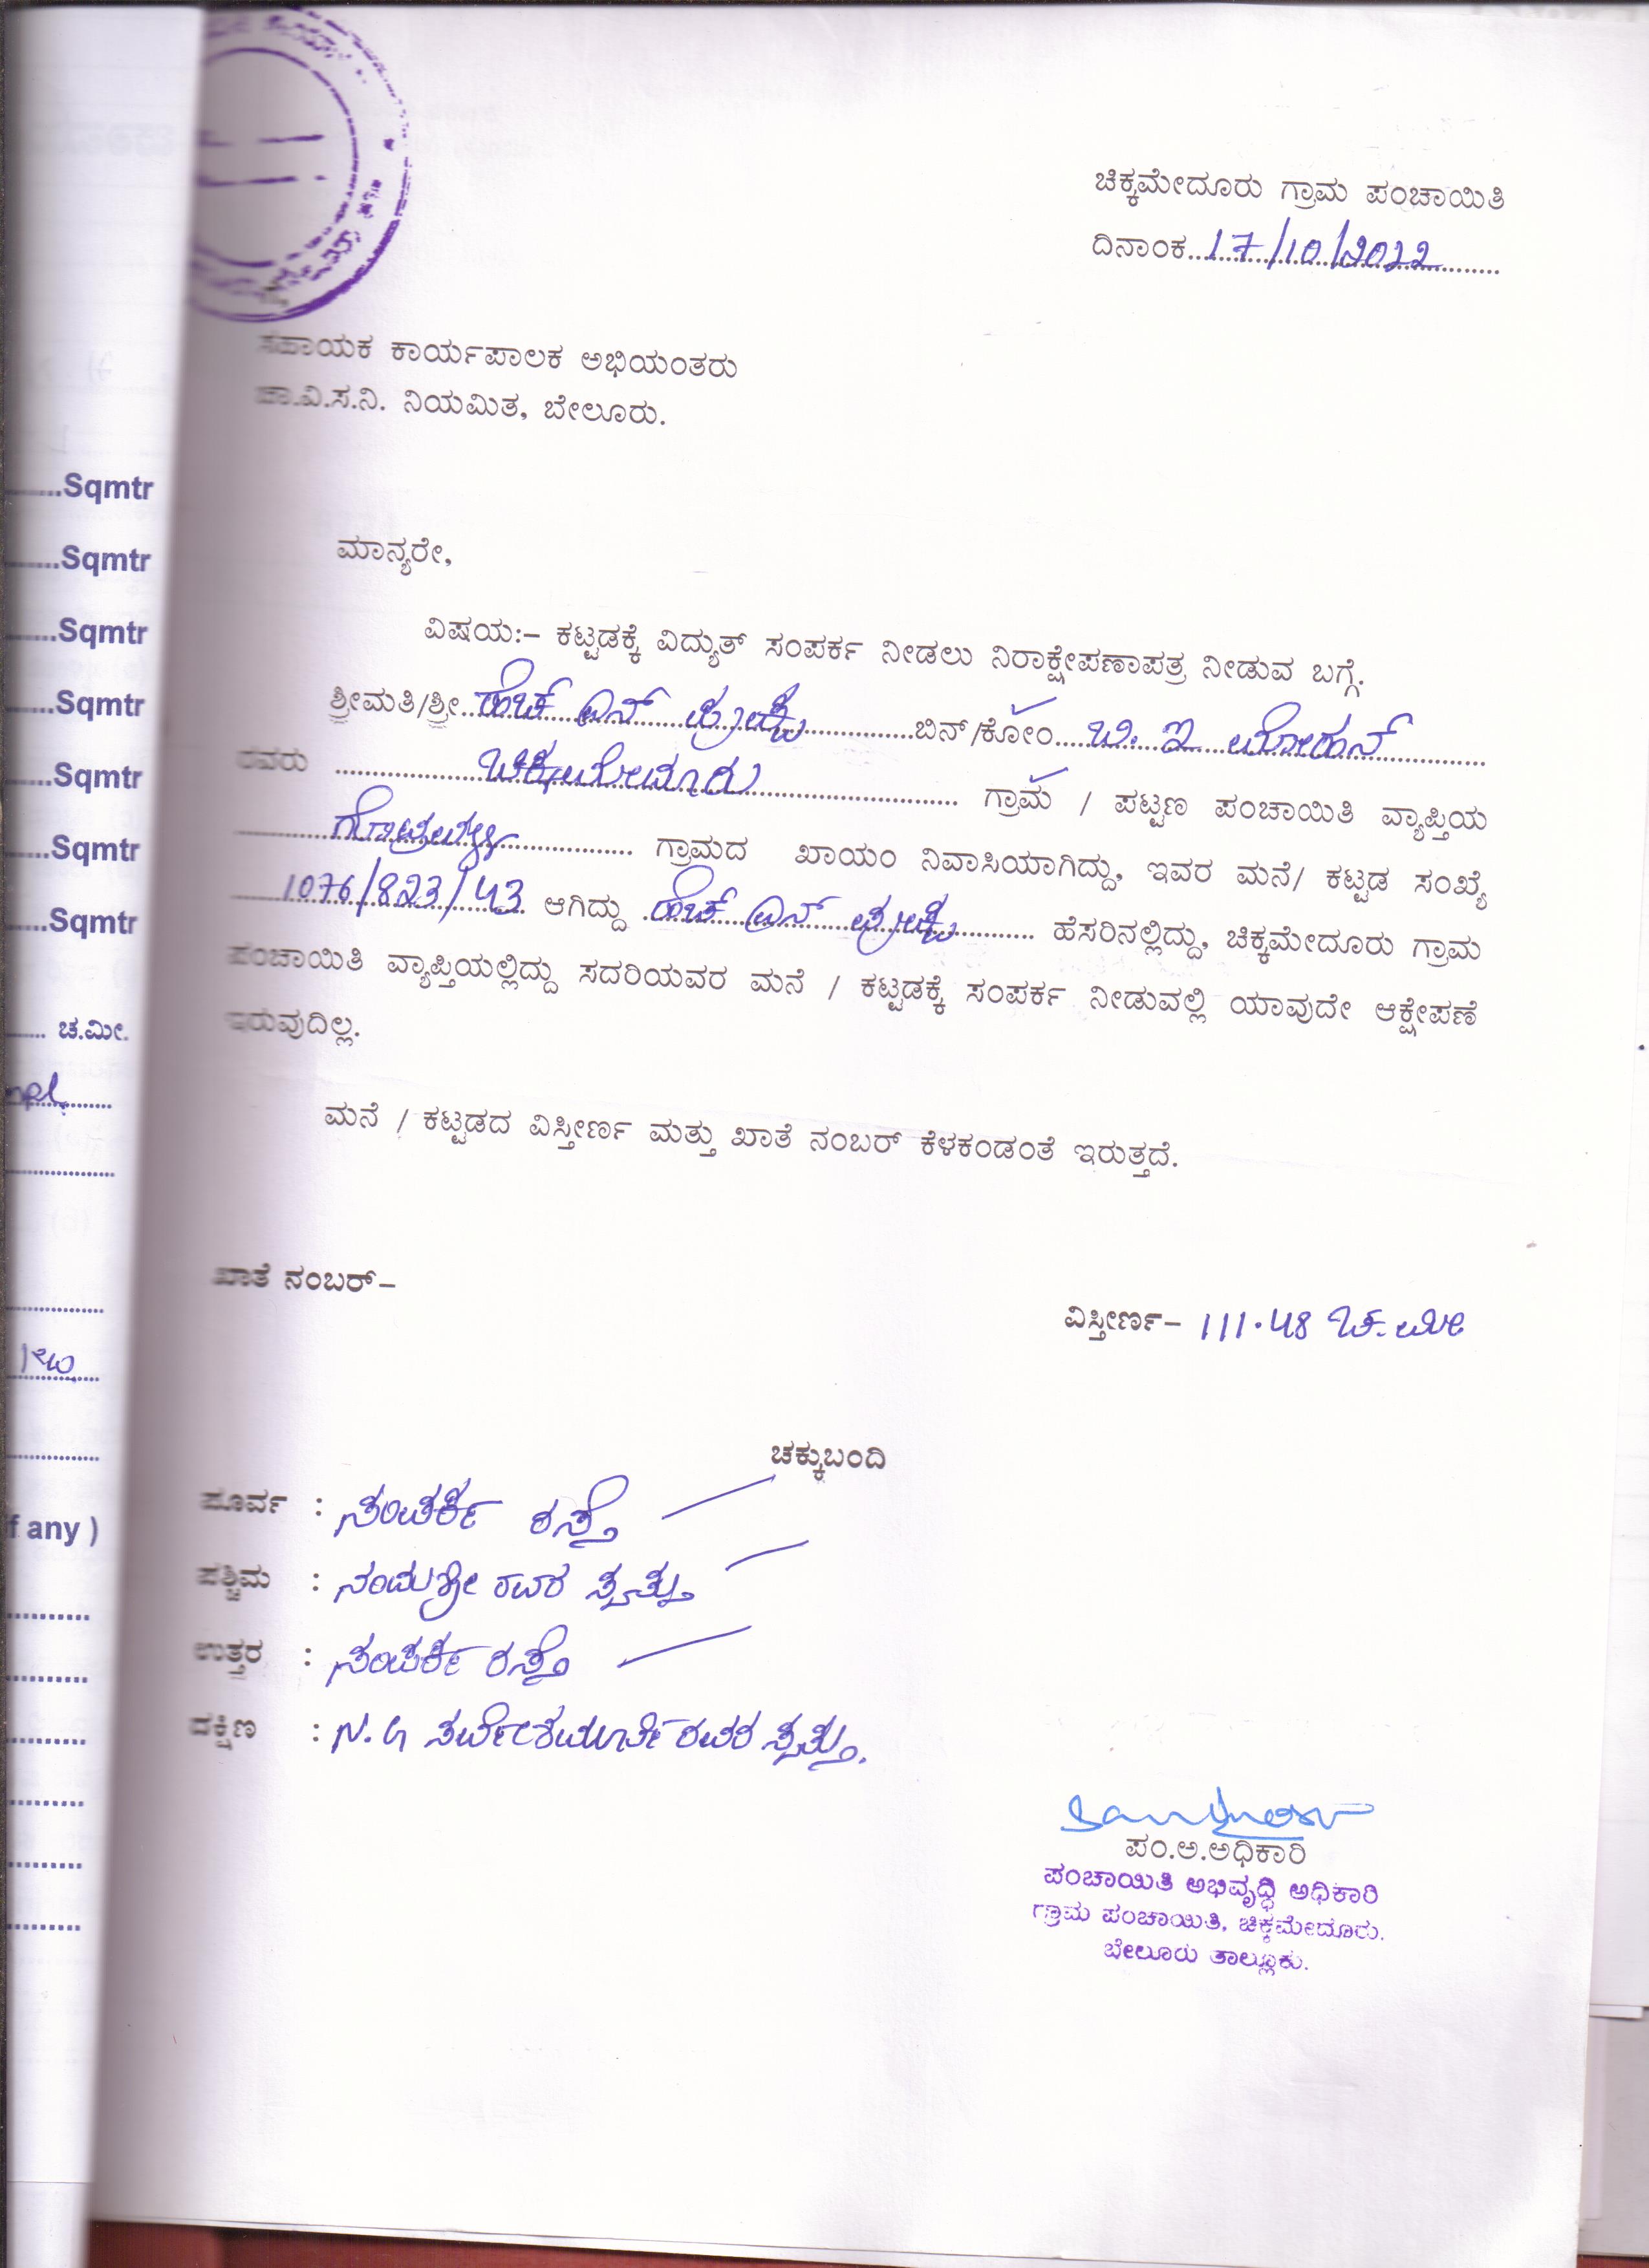 ಚಿಕ್ಕಮೇದೂರು ಗ್ರಾಮ ಪಂಚಾಯಿತಿ
ದಿನಾಂಕ 17/10/2022
ಸಹಾಯಕ ಕಾರ್ಯಪಾಲಕ ಅಭಿಯಂತರು
ಚಾ.ವಿ.ಸ.ನಿ. ನಿಯಮಿತ, ಬೇಲೂರು.
ಮಾನ್ಯರೇ,
ವಿಷಯ:– ಕಟ್ಟಡಕ್ಕೆ ವಿದ್ಯುತ್ ಸಂಪರ್ಕ ನೀಡಲು ನಿರಾಕ್ಷೇಪಣಾಪತ್ರ ನೀಡುವ ಬಗ್ಗೆ.
ಶ್ರೀಮತಿ/ಶ್ರೀ ಹೆಚ್ ಎನ್ ಬಿನ್/ಕೋಂ ಬಿ. ಇ ಮೋಹನ್
ರವರು ಚಿಕ್ಕಮೇದೂರು ಗ್ರಾಮ / ಪಟ್ಟಣ ಪಂಚಾಯಿತಿ ವ್ಯಾಪ್ತಿಯ
ಗ್ರಾಮದ ಖಾಯಂ ನಿವಾಸಿಯಾಗಿದ್ದು, ಇವರ ಮನೆ/ ಕಟ್ಟಡ ಸಂಖ್ಯೆ
1076/823/43 ಆಗಿದ್ದು ಹೆಚ್ ಎನ್ ಹೆಸರಿನಲ್ಲಿದ್ದು, ಚಿಕ್ಕಮೇದೂರು ಗ್ರಾಮ
ಪಂಚಾಯಿತಿ ವ್ಯಾಪ್ತಿಯಲ್ಲಿದ್ದು ಸದರಿಯವರ ಮನೆ / ಕಟ್ಟಡಕ್ಕೆ ಸಂಪರ್ಕ ನೀಡುವಲ್ಲಿ ಯಾವುದೇ ಆಕ್ಷೇಪಣೆ
ಇರುವುದಿಲ್ಲ.
ಮನೆ / ಕಟ್ಟಡದ ವಿಸ್ತೀರ್ಣ ಮತ್ತು ಖಾತೆ ನಂಬರ್ ಕೆಳಕಂಡಂತೆ ಇರುತ್ತದೆ.
ಖಾತೆ ನಂಬರ್–
ವಿಸ್ತೀರ್ಣ– 111.48 ಚ.ಮೀ
ಚಕ್ಕುಬಂದಿ
ಪೂರ್ವ : ಸಂಪರ್ಕ ರಸ್ತೆ
ಪಶ್ಚಿಮ : ರವರ ಸ್ವತ್ತು
ಉತ್ತರ : ಸಂಪರ್ಕ ರಸ್ತೆ
ದಕ್ಷಿಣ : N.G ರವರ ಸ್ವತ್ತು.
ಪಂ.ಅ.ಅಧಿಕಾರಿ
ಪಂಚಾಯಿತಿ ಅಭಿವೃದ್ಧಿ ಅಧಿಕಾರಿ
ಗ್ರಾಮ ಪಂಚಾಯಿತಿ, ಚಿಕ್ಕಮೇದೂರು.
ಬೇಲೂರು ತಾಲ್ಲೂಕು.
Sqmtr
Sqmtr
Sqmtr
Sqmtr
Sqmtr
Sqmtr
Sqmtr
ಚ.ಮೀ.
f any )